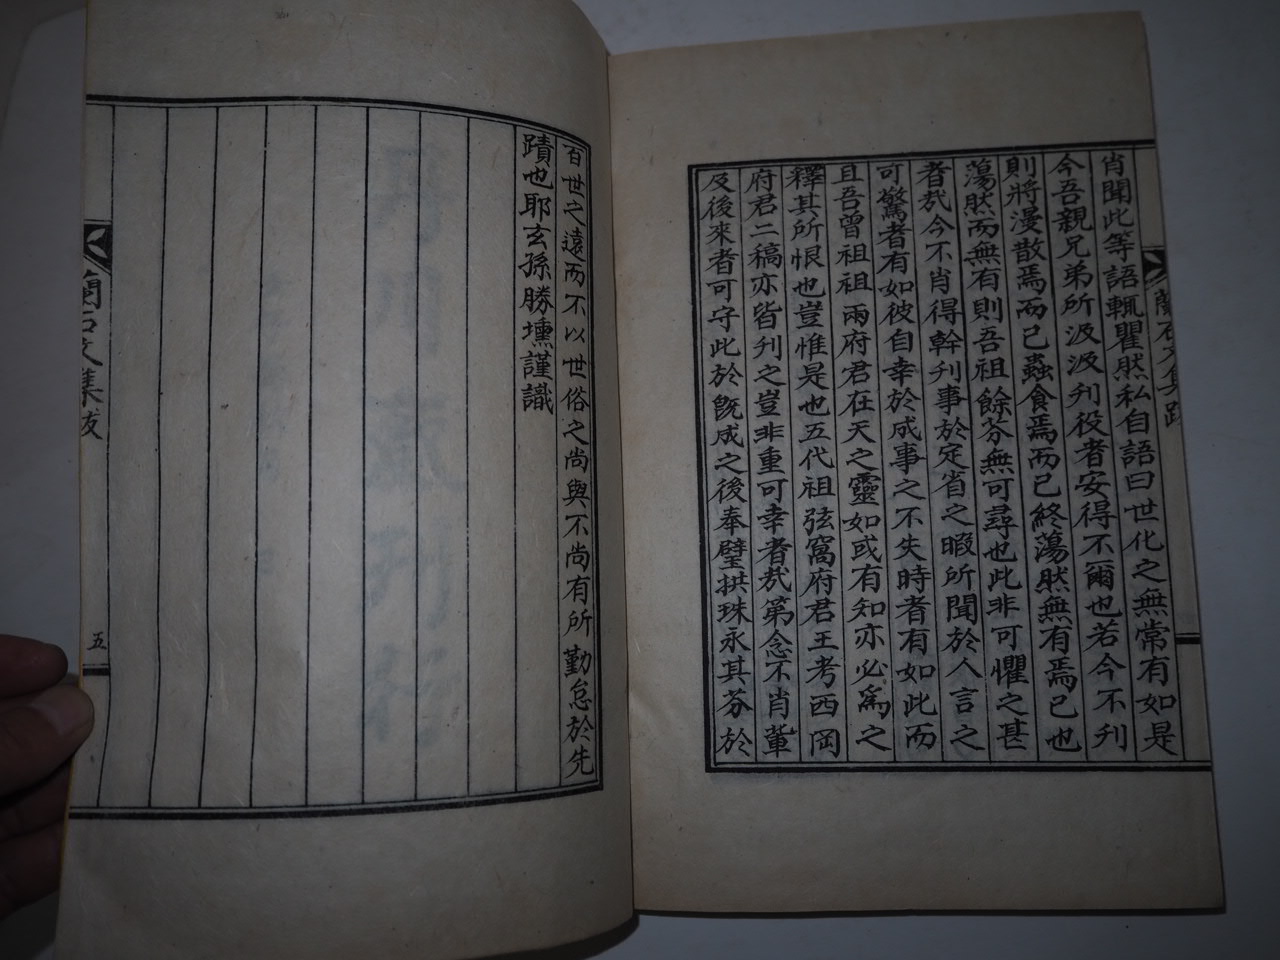 蘭石文集跋
肖聞此等語輒瞿然私自語曰世化之無常有如是
今吾親兄弟所汲汲刋役者安得不爾也若今不刋
則將漫散焉而已蟲食焉而已終蕩然無有焉已也
蕩然而無有則吾祖餘芬無可尋也此非可懼之甚
者㢤今不肖得幹刋事於定省之暇所聞於人言之
可驚者有如彼自幸於成事之不失時者有如此而
且吾曾祖祖兩府君在天之靈如或有知亦必爲之
釋其所恨也豈惟是也五代祖弦窩府君王考西岡
府君二稿亦皆刋之豈非重可幸者㢤第念不肖軰
及後來者可守此於旣成之後奉璧拱珠永其芬於
百世之遠而不以世俗之尚與不尚有所勤怠於先
蹟也耶玄孫勝壎謹識
蘭石文集跋
五